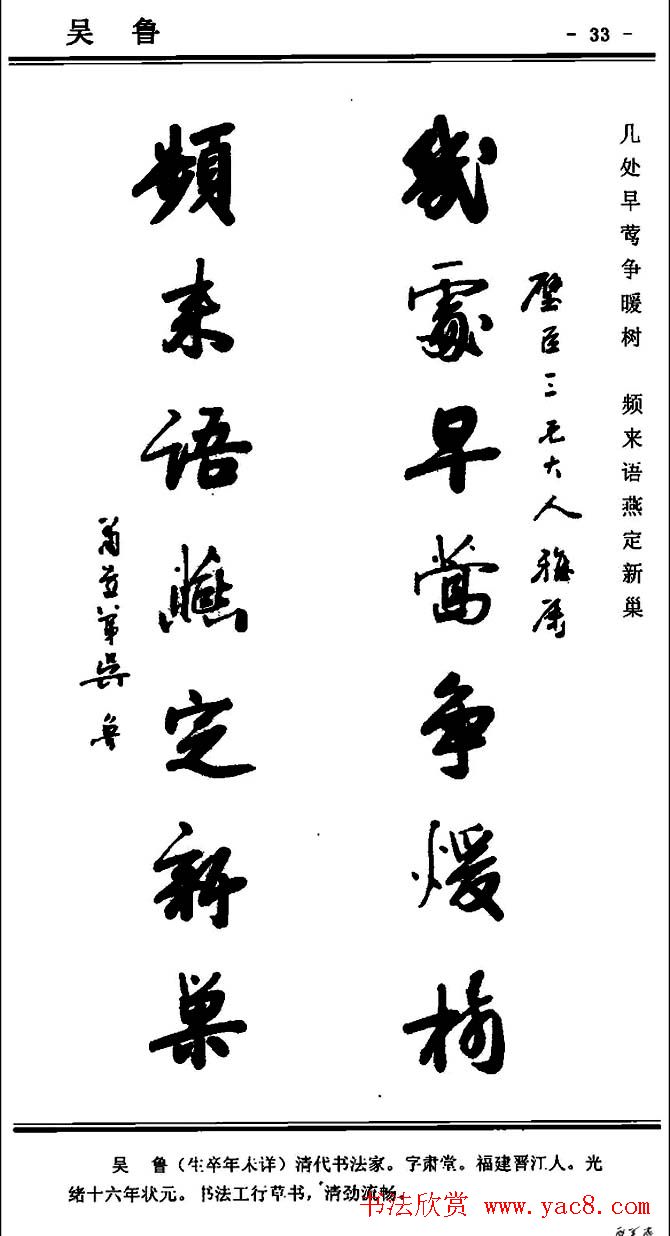 吴 鲁
- 33 -
几处早莺争暖树 频来语燕定新巢
三兄大人雅属
幾處早莺争煖树
頻来语燕定新巢
弟吴鲁
吴 鲁（生卒年未详）清代书法家。字肃堂。福建晋江人。光
绪十六年状元。书法工行草书，清劲流畅。
书法欣赏 www.yac8.com